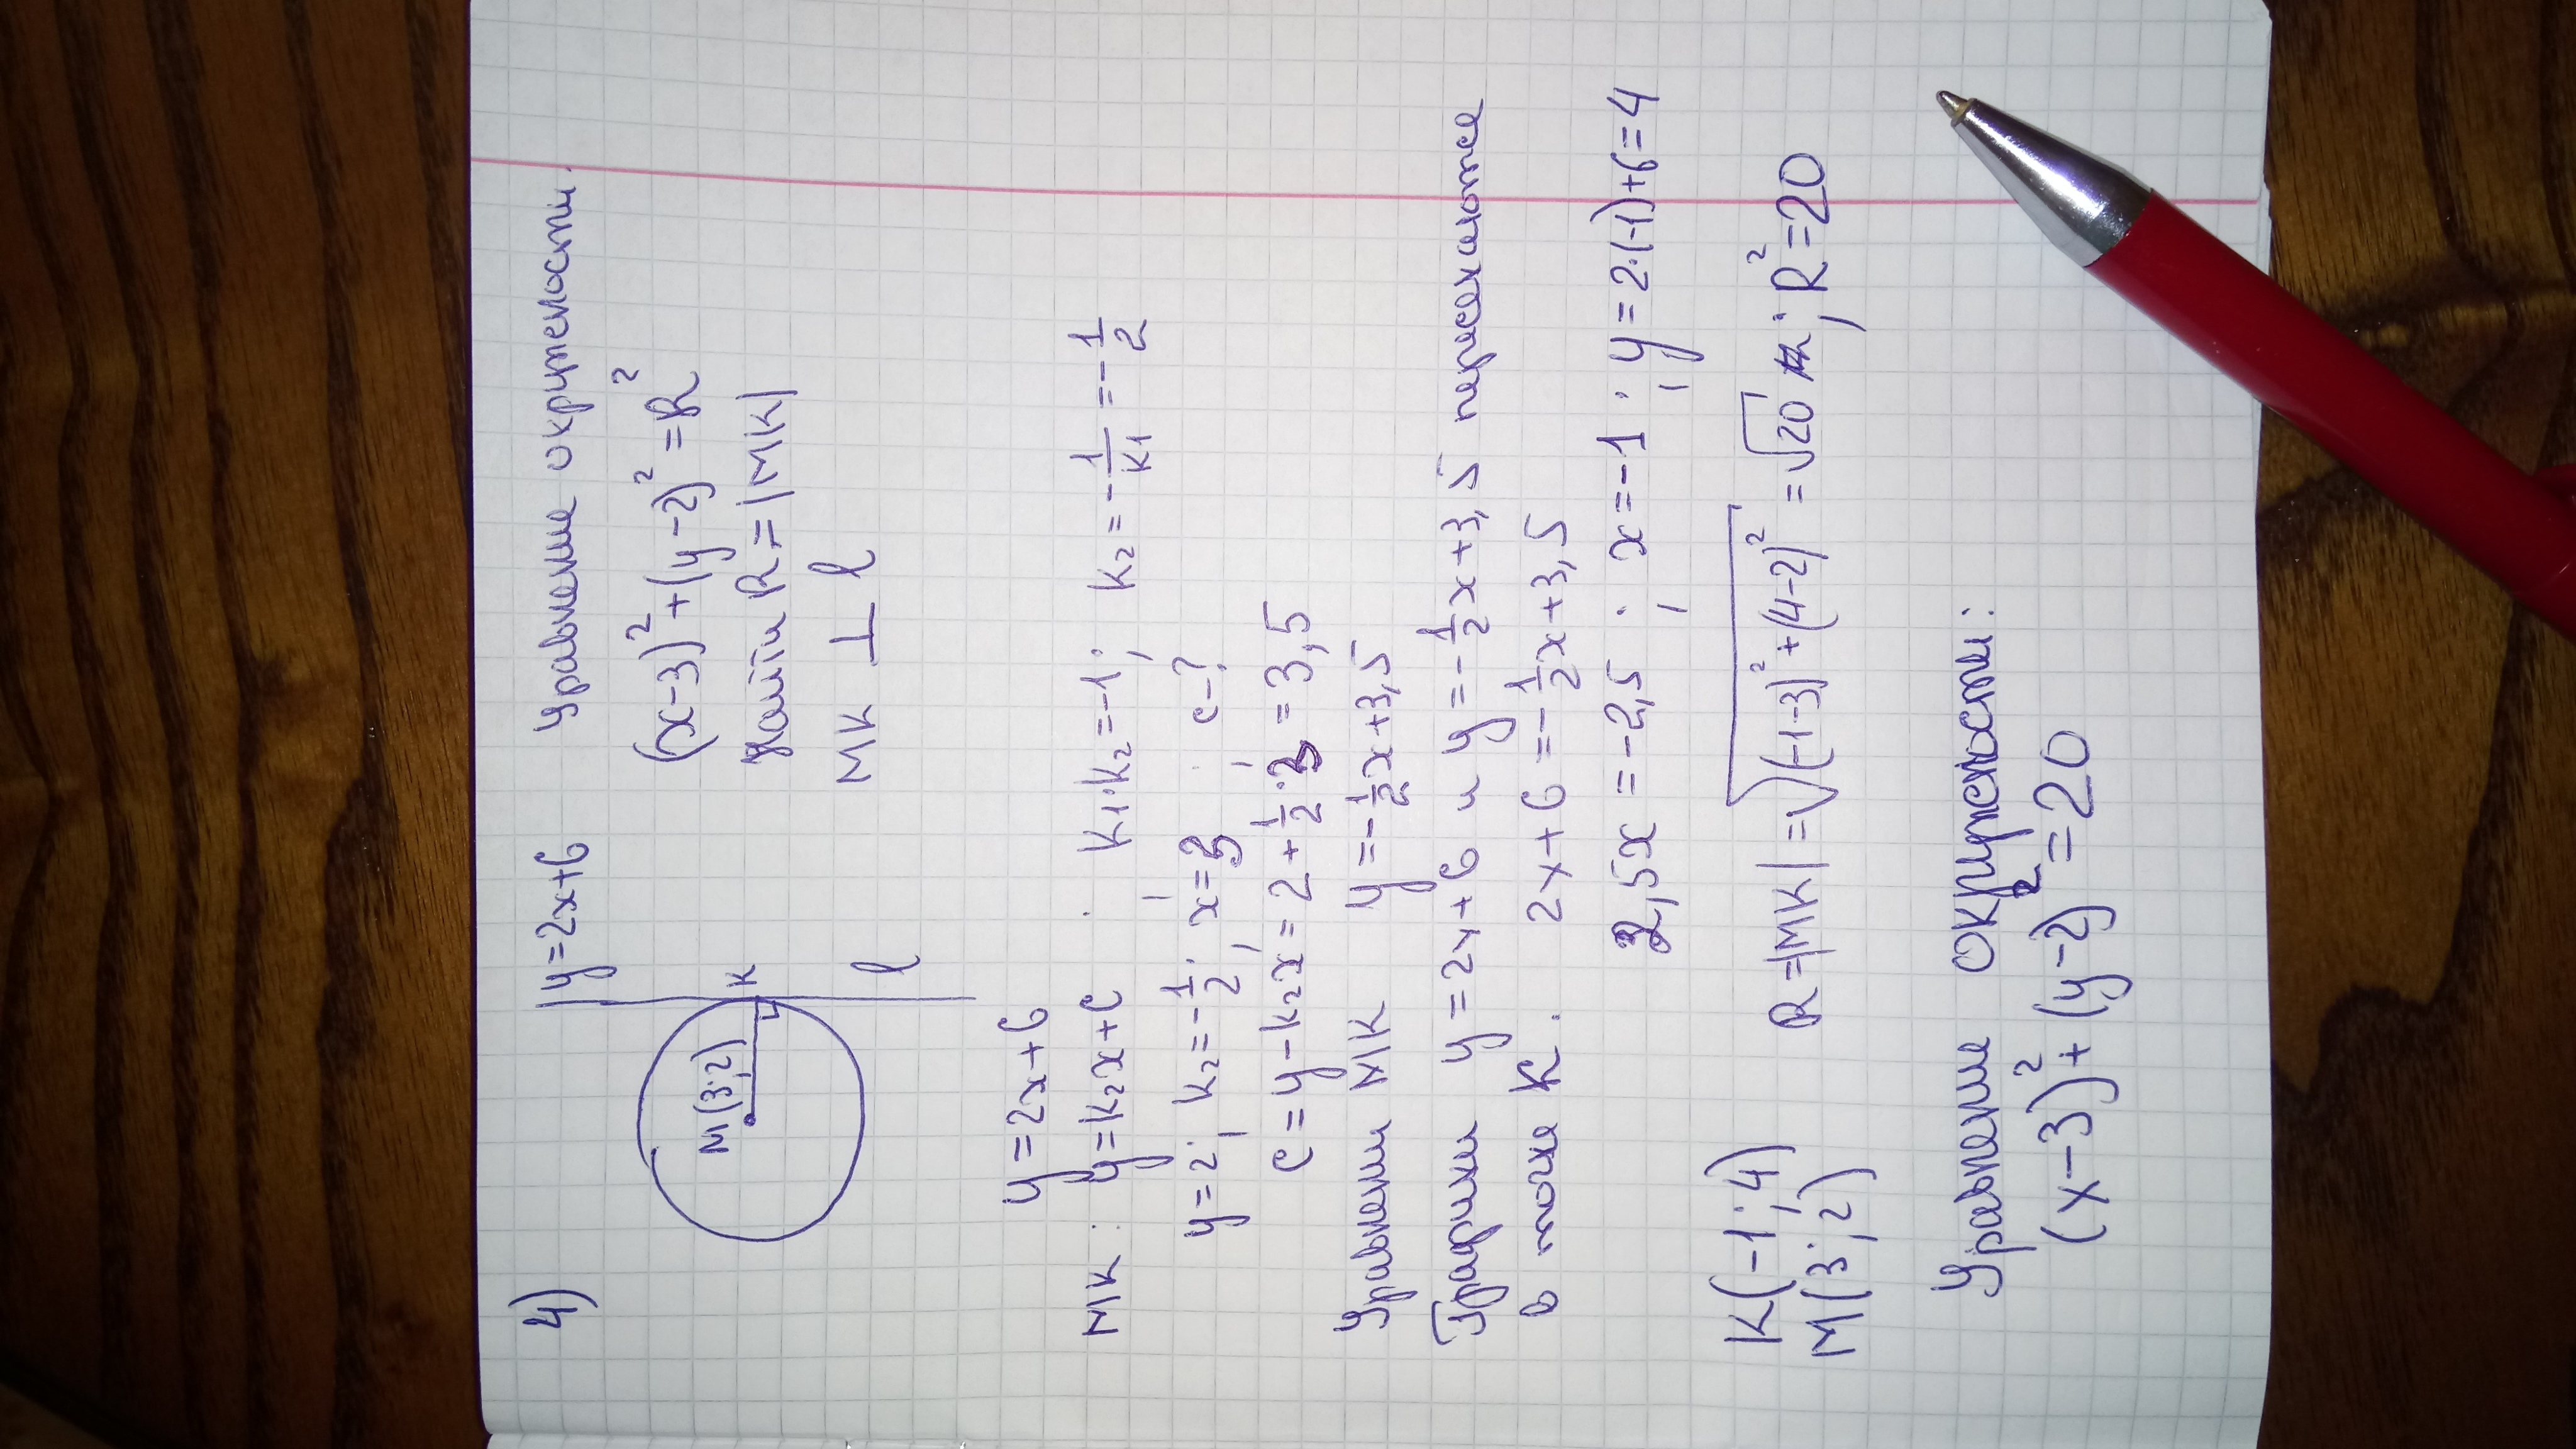 4)
y=2x+6
M(3;2)
K
l
Уравнение окружности.
(x-3)²+(y-2)²=R²
Найти R=|MK|
MK ⊥ l
y=2x+6
MK: y=k₂x+c; k₁·k₂=-1; k₂=-1/k₁=-1/2
y=2; k₂=-1/2; x=3; c-?
c=y-k₂x=2+1/2·3=3,5
Уравнении MK y=-1/2x+3,5
Графики y=2x+6 и y=-1/2x+3,5 пересекаются
в точке K. 2x+6=-1/2x+3,5
2,5x=-2,5; x=-1; y=2·(-1)+6=4
K(-1;4)
M(3;2)
R=|MK|=√(-1-3)²+(4-2)²=√20; R²=20
Уравнение окружности:
(x-3)²+(y-2)²=20